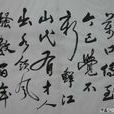 萬口傳至
今已覺不
新鮮江
山代有才人
出各領風
騷數百年